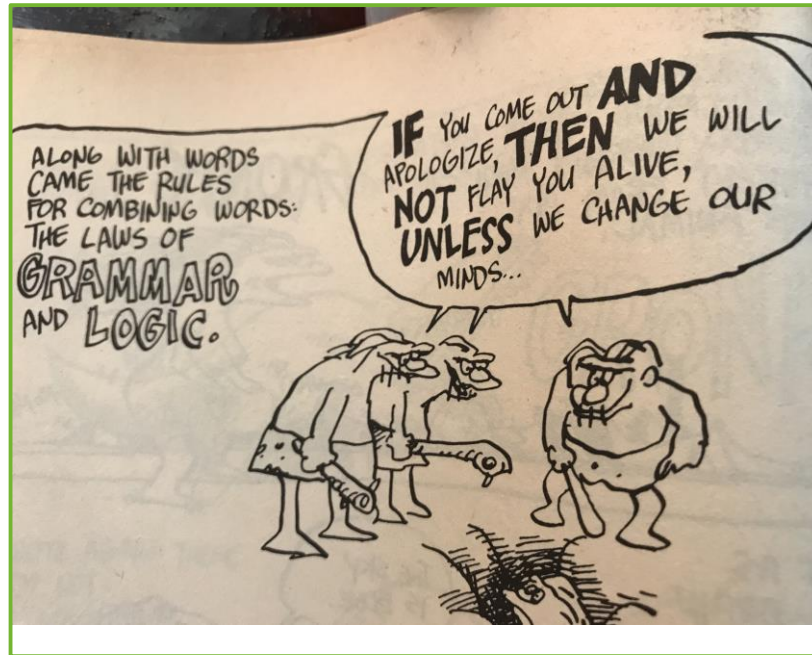 ALONG WITH WORDS
CAME THE RULES
FOR COMBINING WORDS:
THE LAWS OF
GRAMMAR
AND LOGIC.
IF YOU COME OUT AND
APOLOGIZE, THEN WE WILL
NOT FLAY YOU ALIVE,
UNLESS WE CHANGE OUR
MINDS...